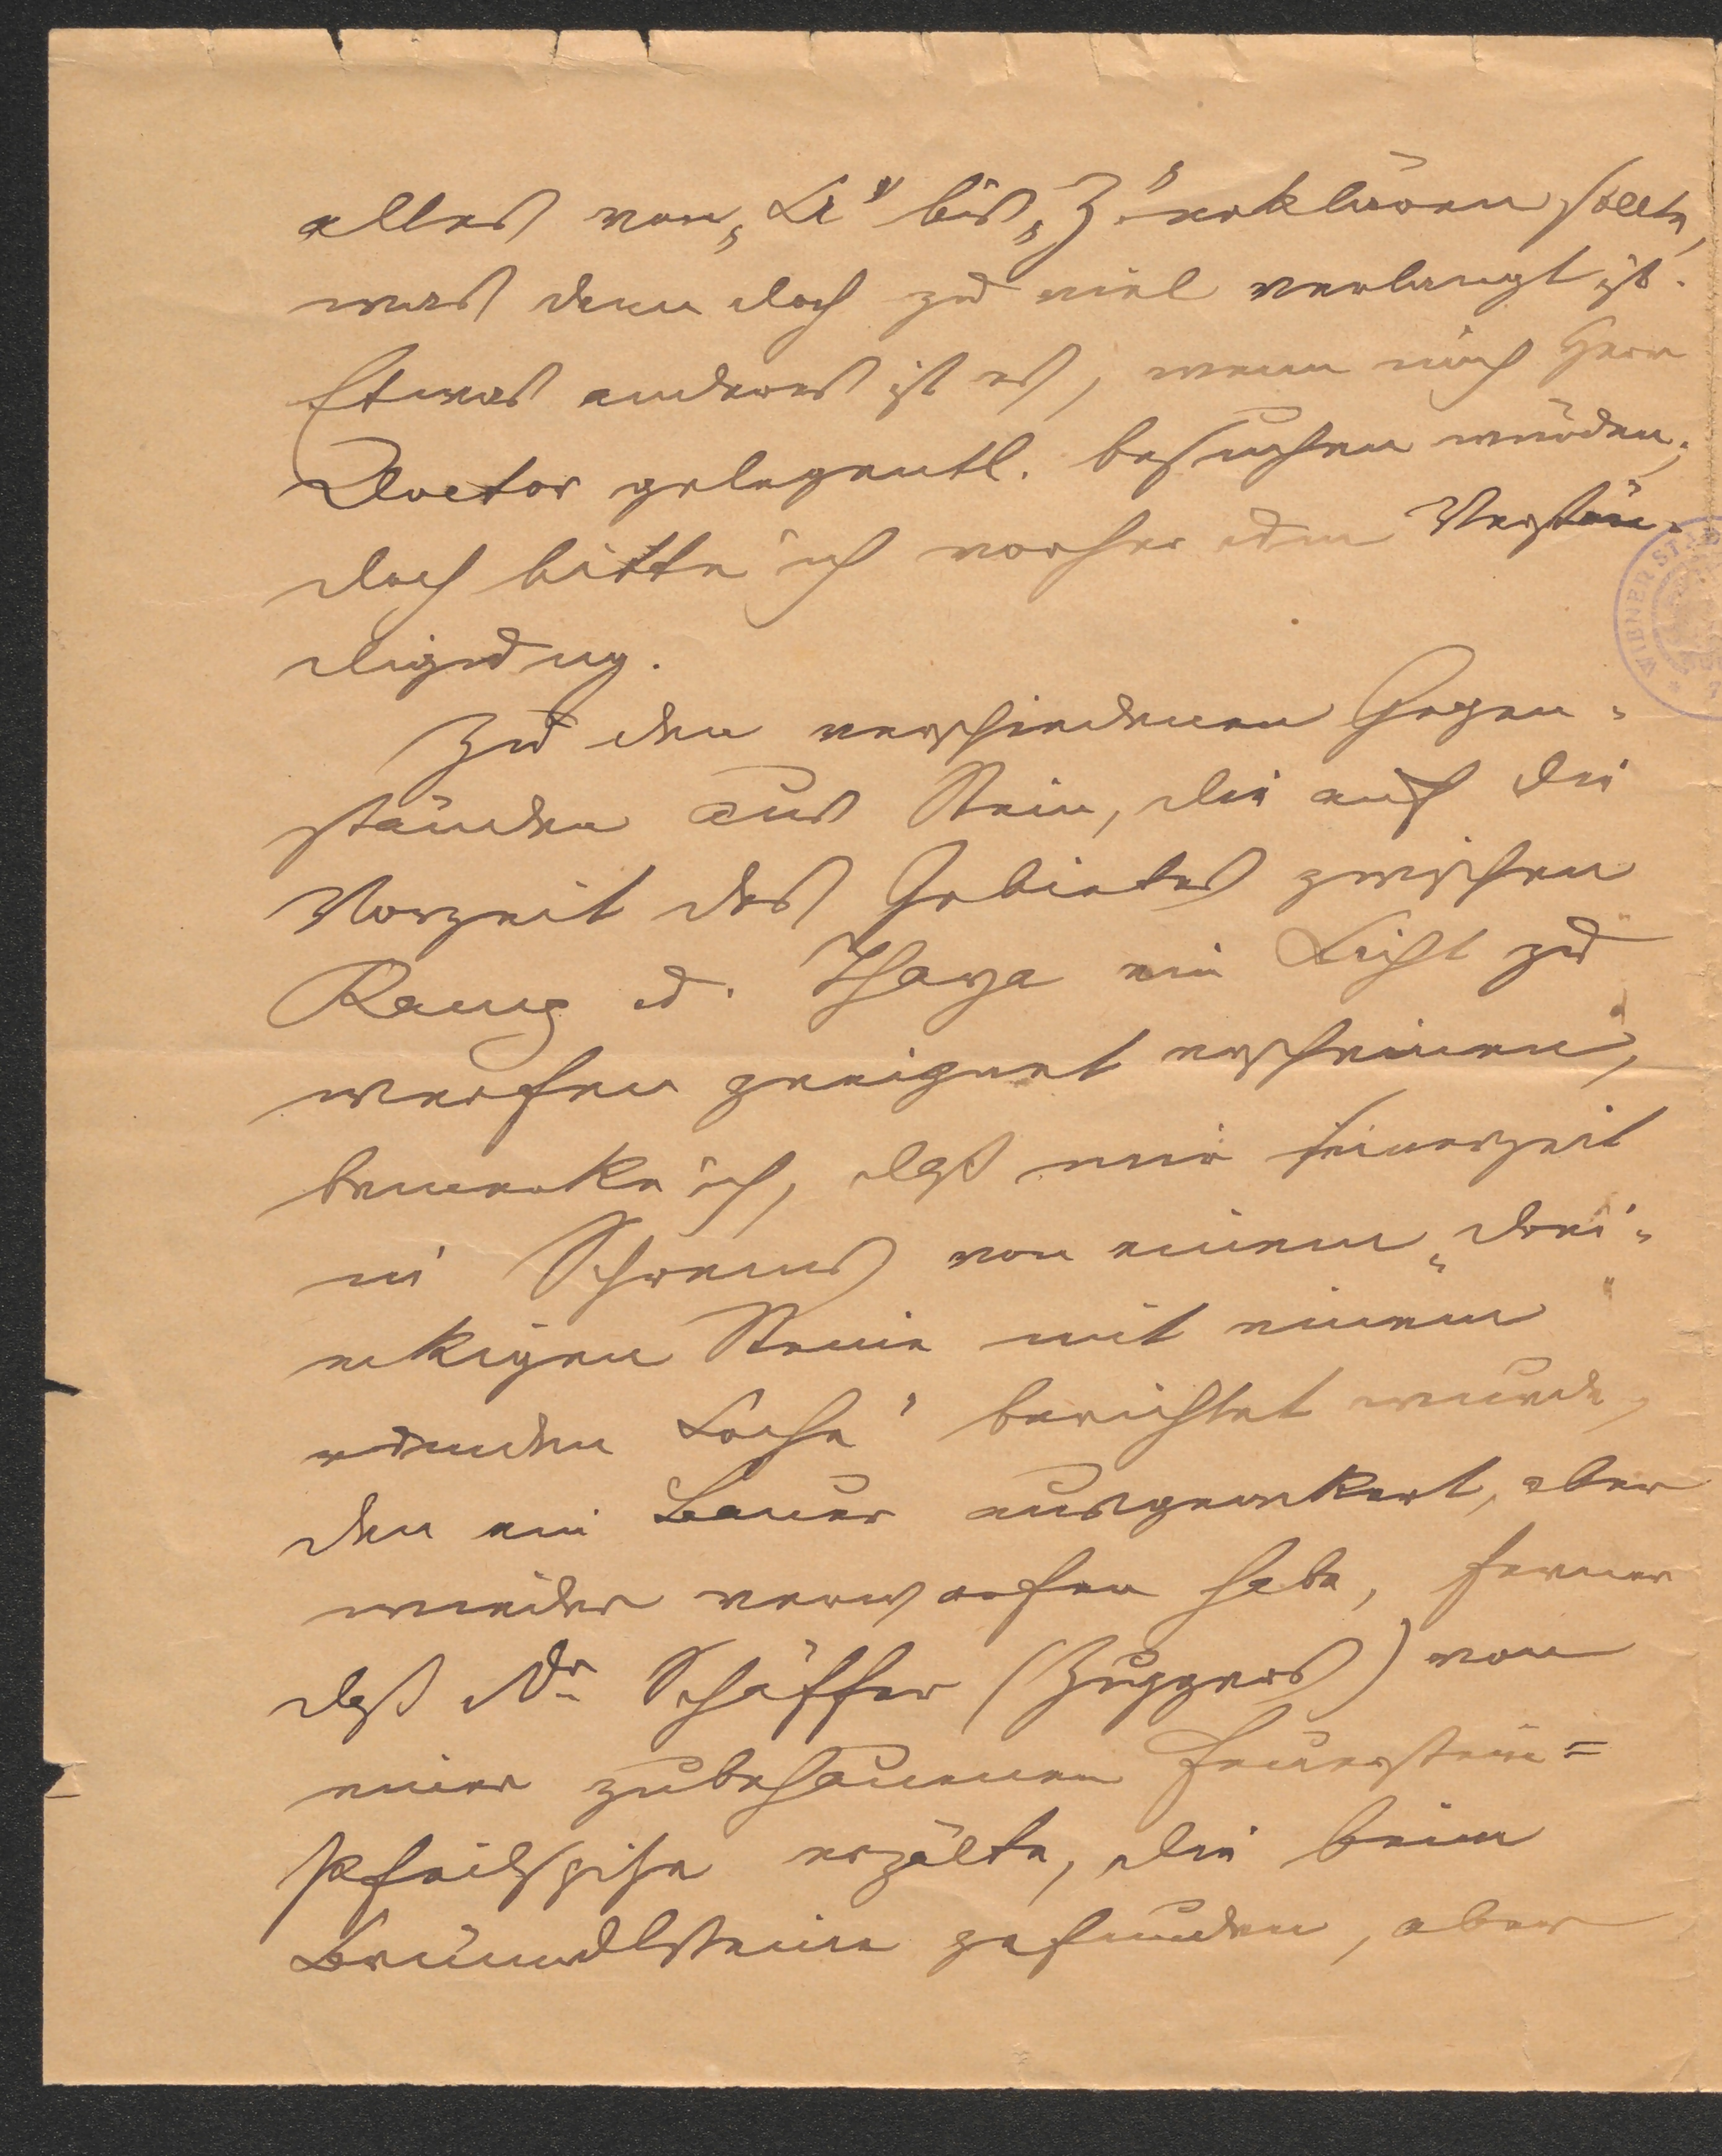 alles von „A" bis „Z" erklären sollte,
was denn doch zu viel verlangt ist.
Etwas anderes ist es, wenn mich Herr
Doctor gelegentl. besuchen würden;
doch bitte ich vorher um Verstän-
digung.
Zu den verschiedenen Gegen-
ständen aus Stein, die auf die
Vorzeit des Gebietes zwischen
Kamp u. Thaya ein Licht zu
werfen geeignet erscheinen,
bemerke ich, daß mir seinerzeit
in Schrems von einem „drei-
eckigen Steine mit einem
runden Loche" berichtet wurde,
den ein Bauer ausgeackert, aber
wieder verworfen habe, ferner
daß Dr Schäffer (Zuggers) von
einer zubehauenen Feuerstein=
Pfeilspitze erzälte, die beim
Bründlsteine gefunden, aber
WIENER